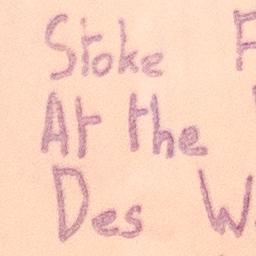 Stoke
At the
Des